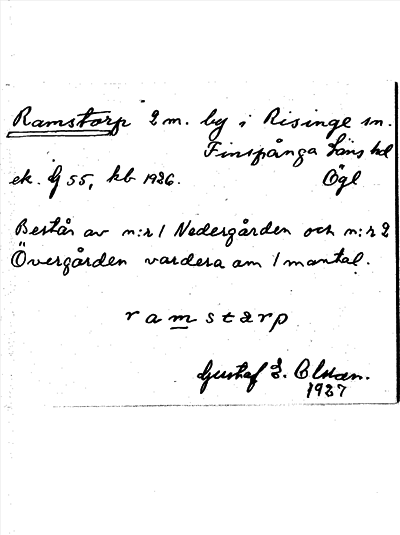 Ramstorp 2 m. by i Risinge sn.
Finspånga läns hd
ek. G 55, kb 1926. Ögl
Består av n:r 1 Nedergården och n:r 2
Övergården vardera om 1 mantal.
ramstarp
Gustaf E. Olsson.
1927